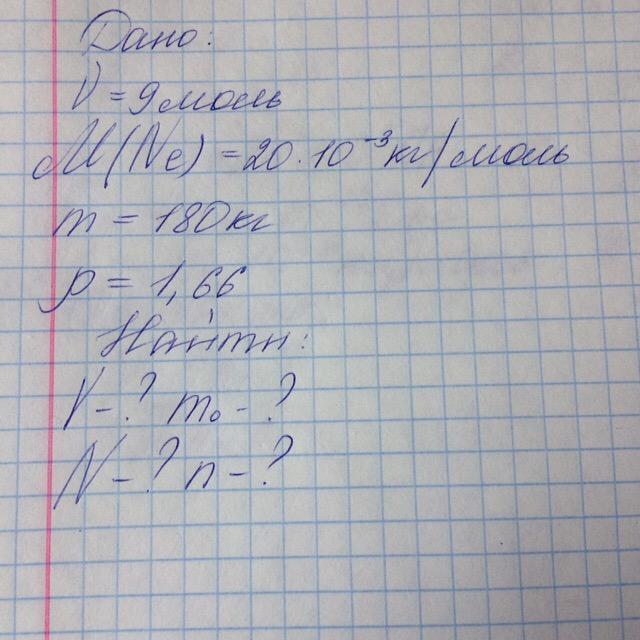 Дано:
ν = 9 моль
M(Ne) = 20·10⁻³ кг/моль
m = 180 кг
ρ = 1,66
Найти:
V - ? m₀ - ?
N - ? n - ?